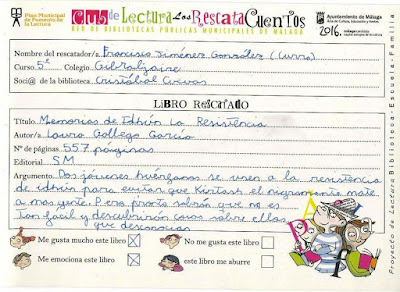 Plan Municipal
de Fomento de
la Lectura
Club de Lectura Los RescataCuentos
RED DE BIBLIOTECAS PÚBLICAS MUNICIPALES DE MÁLAGA
Ayuntamiento de Málaga
2016,
Nombre del rescatador/a Francisco Jiménez González (Curro)
Curso 5º Colegio Gibraljaire
Soci@ de la biblioteca Cristóbal Cuevas
LIBRO RESCATADO
Título Memorias de Idhún La Resistencia
Autor/a Laura Gallego García
Nº de páginas 557 páginas
Editorial SM
Argumento Dos jóvenes huérfanos se unen a la resistencia
de idhún para evitar que Kirtash el nigromante mate
a mas gente. Pero pronto sabrán que no es
tan facil y descubrirán cosas sobre ellos
que desconocias
Me gusta mucho este libro
No me gusta este libro
Me emociona este libro
este libro me aburre
Proyecto de Lectura Biblioteca-Escuela-Familia